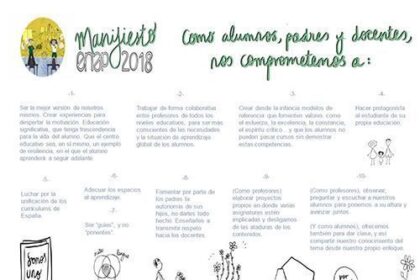 manifiesto
enap 2018
Como alumnos, padres y docentes,
nos comprometemos a:
-1-
Ser la mejor versión de nosotros
mismos. Crear experiencias para
despertar la motivación. Educación
significativa, que tenga trascendencia
para la vida del alumno. Que el centro
educativo sea, en sí mismo, un ejemplo
de resiliencia, en el que el alumno
aprenderá a seguir adelante.
-2-
Trabajar de forma colaborativa
entre profesores de todos los
niveles educativos, para ser más
conscientes de las necesidades
y la situación de aprendizaje
global de los alumnos.
-3-
Crear desde la infancia modelos de
referencia que fomenten valores, como
el esfuerzo, la excelencia, la constancia,
el espíritu crítico... y que los alumnos no
puedan pasar cursos sin demostrar
estas competencias.
-4-
Hacer protagonista
al estudiante de su
propia educación.
-5-
Luchar por la
unificación de los
currículums de
España.
-6-
Adecuar los espacios
al aprendizaje.
-7-
Ser "guías", y no
"ponentes".
-8-
Fomentar por parte de
los padres la
autonomía de sus
hijos, no darles todo
hecho. Enseñarles a
transmitir respeto
hacia los docentes.
-9-
(Como profesores)
elaborar proyectos
propios en donde varias
asignaturas estén
implicadas y desligarnos
de las ataduras de los
contenidos.
-10-
(Como profesores), observar,
preguntar y escuchar a nuestros
alumnos para ponernos a su altura y
avanzar juntos.
(Y como alumnos), ofrecernos
también para dar clase, y así
compartir nuestro conocimiento del
tema desde nuestro propio enfoque.
Somos
uno